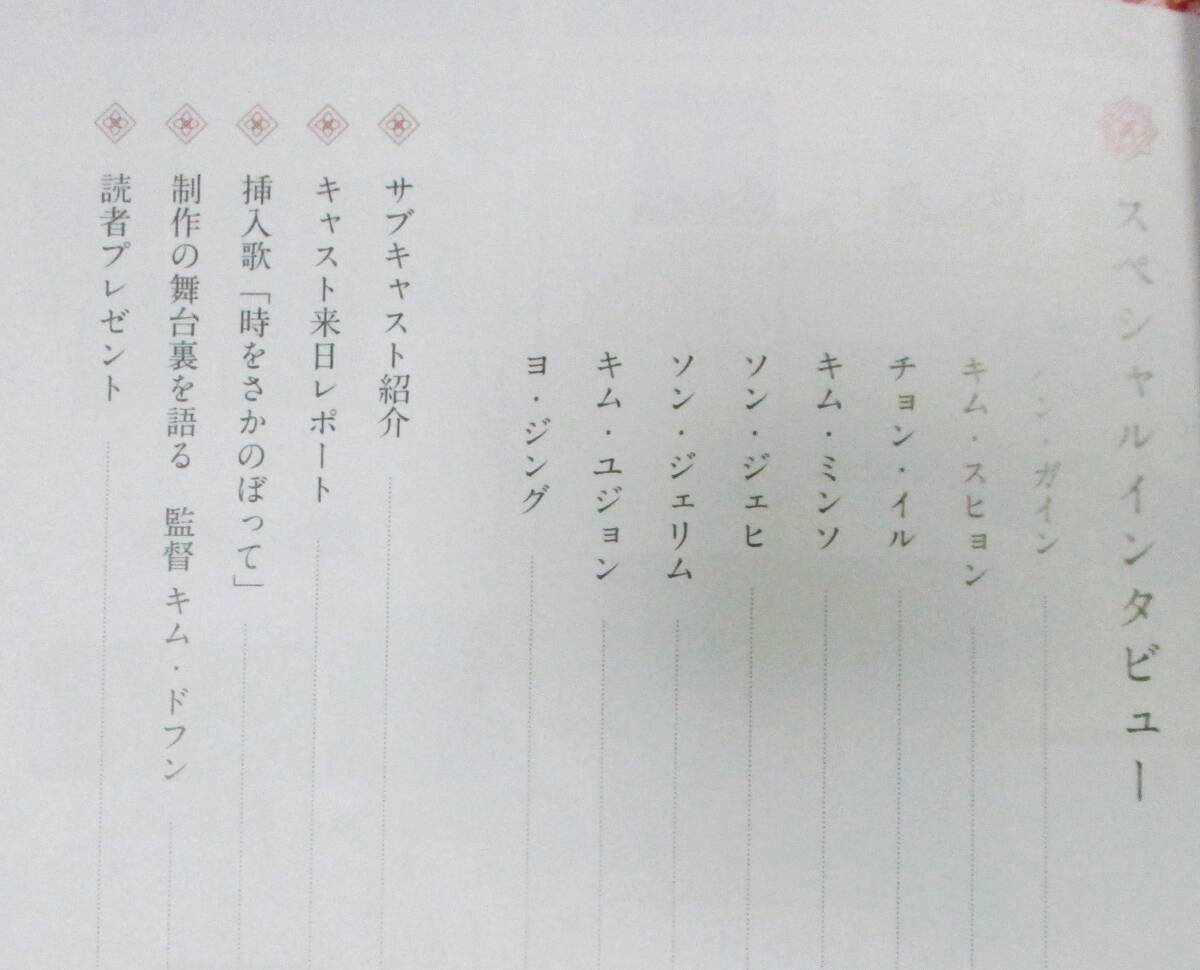 スペシャルインタビュー
ン・ガイン
キム・スヒョン
チョン・イル
キム・ミンソ
ソン・ジェヒ
ソン・ジェリム
キム・ユジョン
ヨ・ジング
サブキャスト紹介
キャスト来日レポート
挿入歌「時をさかのぼって」
制作の舞台裏を語る　監督 キム・ドフン
読者プレゼント